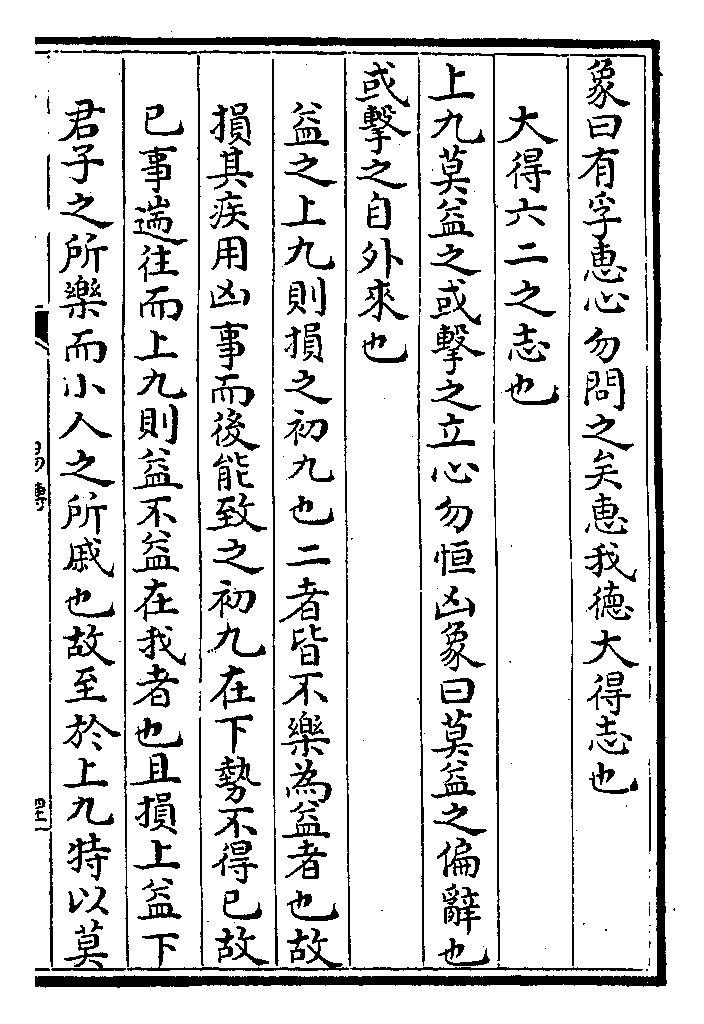 象曰有孚惠心勿問之矣惠我德大得志也
大得六二之志也
上九莫益之或擊之立心勿恒凶象曰莫益之偏辭也
或擊之自外來也
益之上九則損之初九也二者皆不樂為益者也故
損其疾用凶事而後能致之初九在下勢不得已故
已事遄往而上九則益不益在我者也且損上益下
君子之所樂而小人之所戚也故至於上九特以莫
易傳